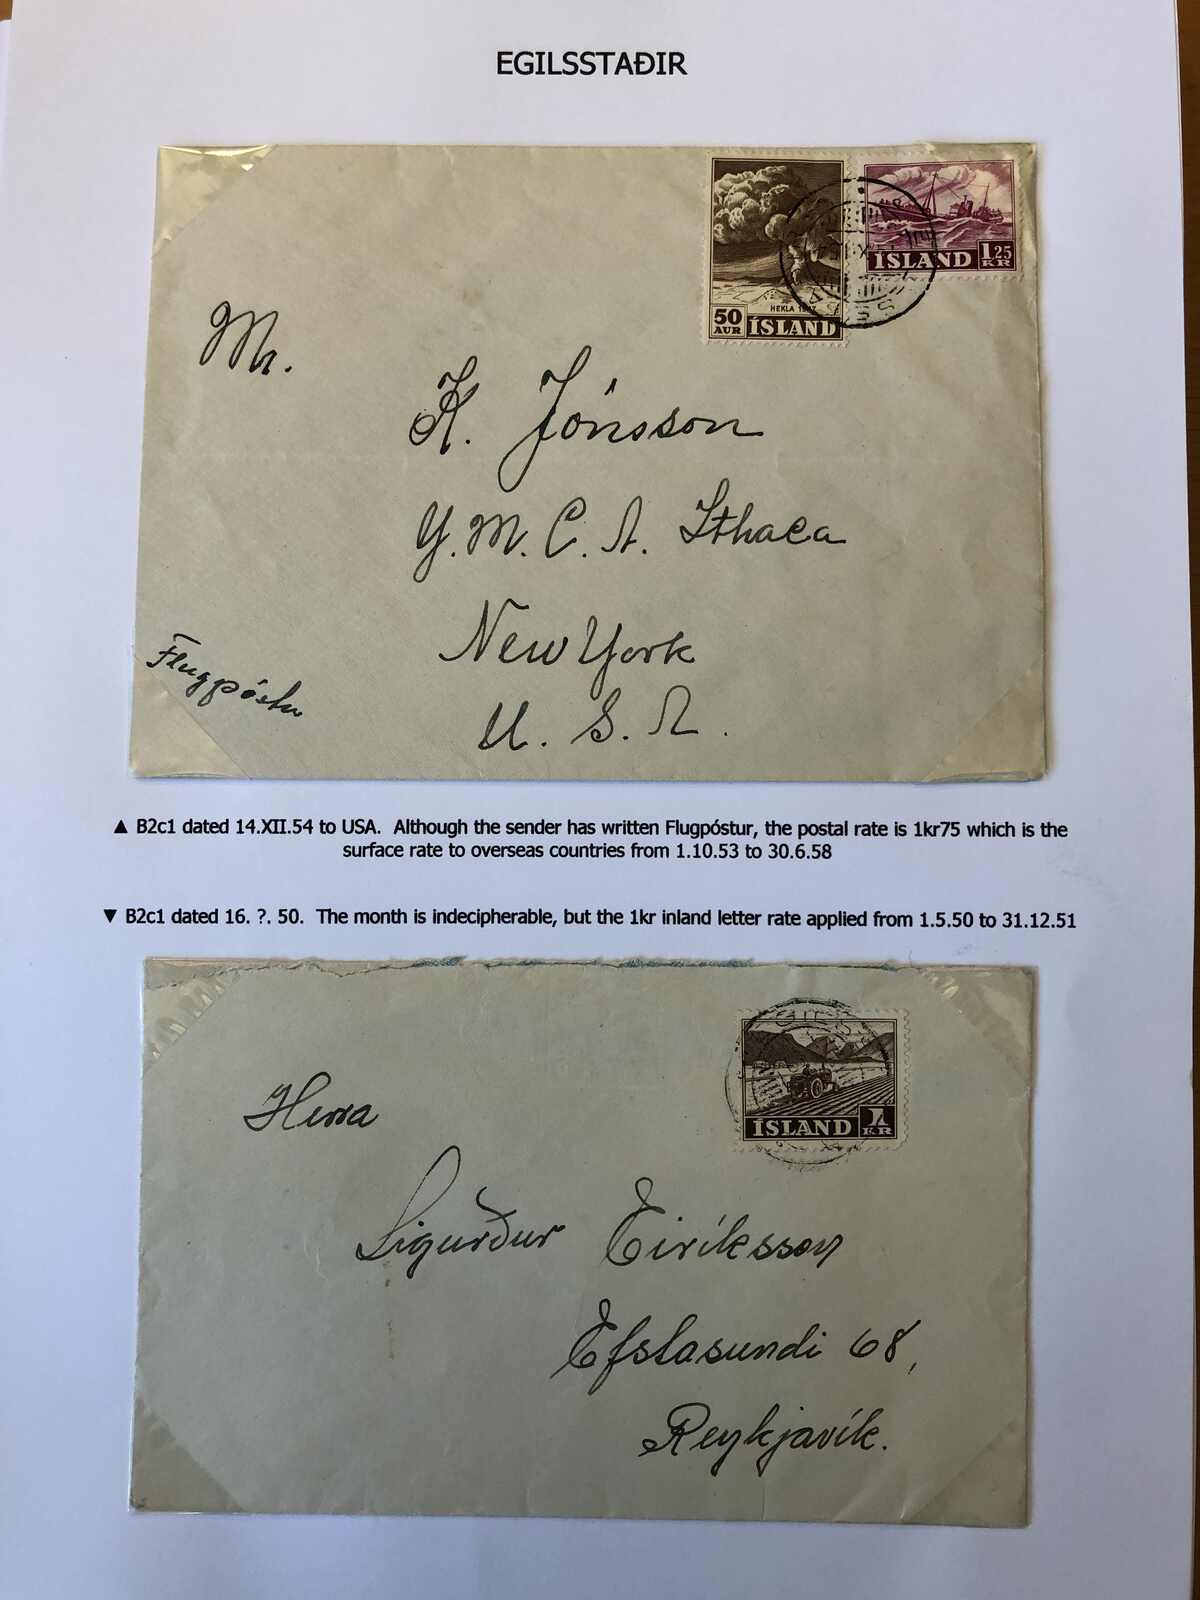 EGILSSTAÐIR
HEKLA 1947
50 AUR ÍSLAND
ÍSLAND 1 25 KR
Mr.
K. Jónsson
Y.M.C.A. Ithaca
New York
U.S.A.
Flugpóstur
▲ B2c1 dated 14.XII.54 to USA. Although the sender has written Flugpóstur, the postal rate is 1kr75 which is the
surface rate to overseas countries from 1.10.53 to 30.6.58
▼ B2c1 dated 16. ?. 50. The month is indecipherable, but the 1kr inland letter rate applied from 1.5.50 to 31.12.51
ÍSLAND 1 KR
Herra
Sigurður Eiríksson
Efstasundi 68,
Reykjavík.